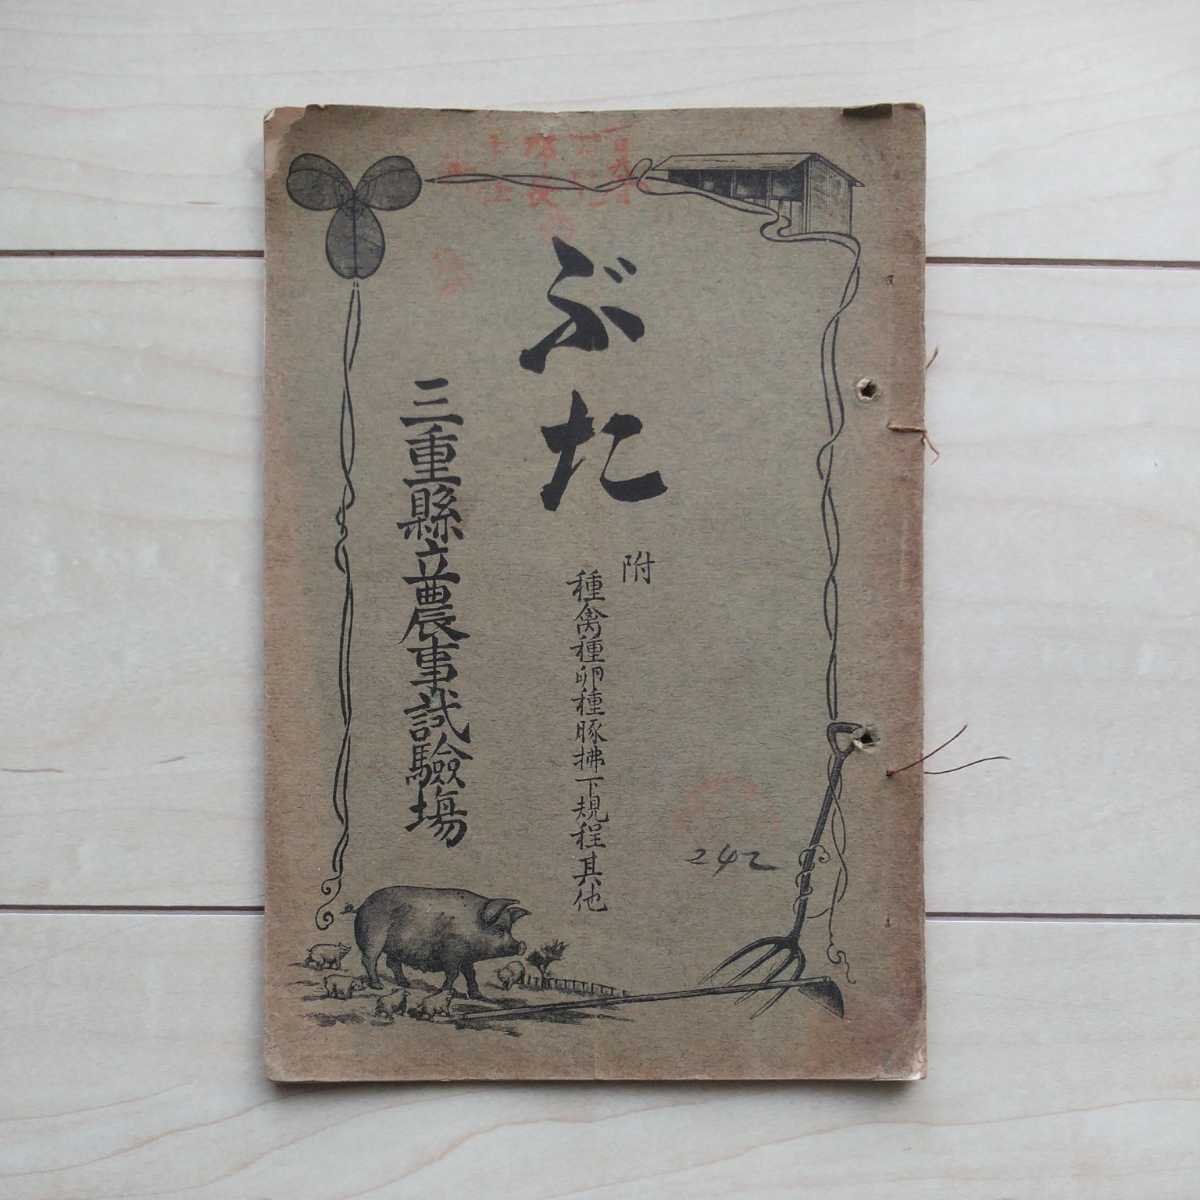 ぶた
附
種禽種卵種豚拂下規程其他
三重縣立農事試驗場
242